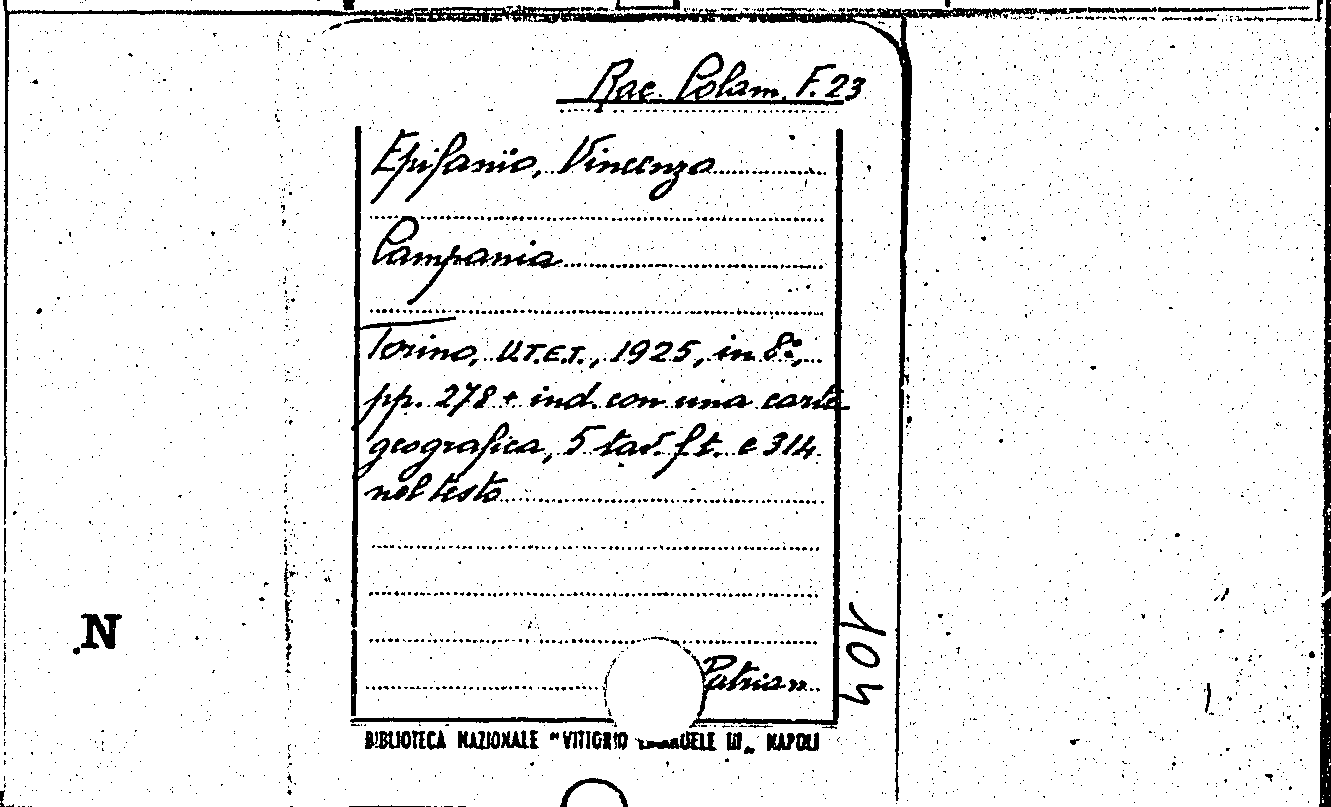 Rac. Colam. F. 23
Epifanio, Vincenzo
Campania
Torino, U.T.E.T., 1925, in 8º,
pp. 278 + ind. con una carta
geografica, 5 tav. f. t. e 314
nel testo
104
N
BIBLIOTECA NAZIONALE "VITTORIO EMANUELE III" NAPOLI